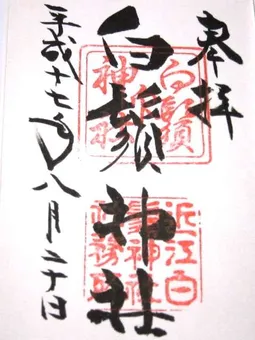 奉拝
白鬚神社
平成十七年八月二十日
近江白
鬚神社
社務所